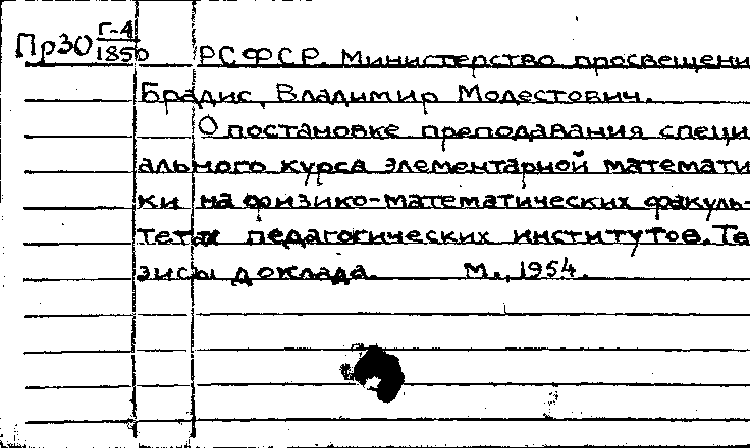 Пр30 Г-4
1850
РСФСР. Министерство просвещени
Брадис, Владимир Модестович.
О постановке преподавания специ
ального курса элементарной математи
ки на физико-математических факуль-
тетах педагогических институтов. Те
зисы доклада. М., 1954.